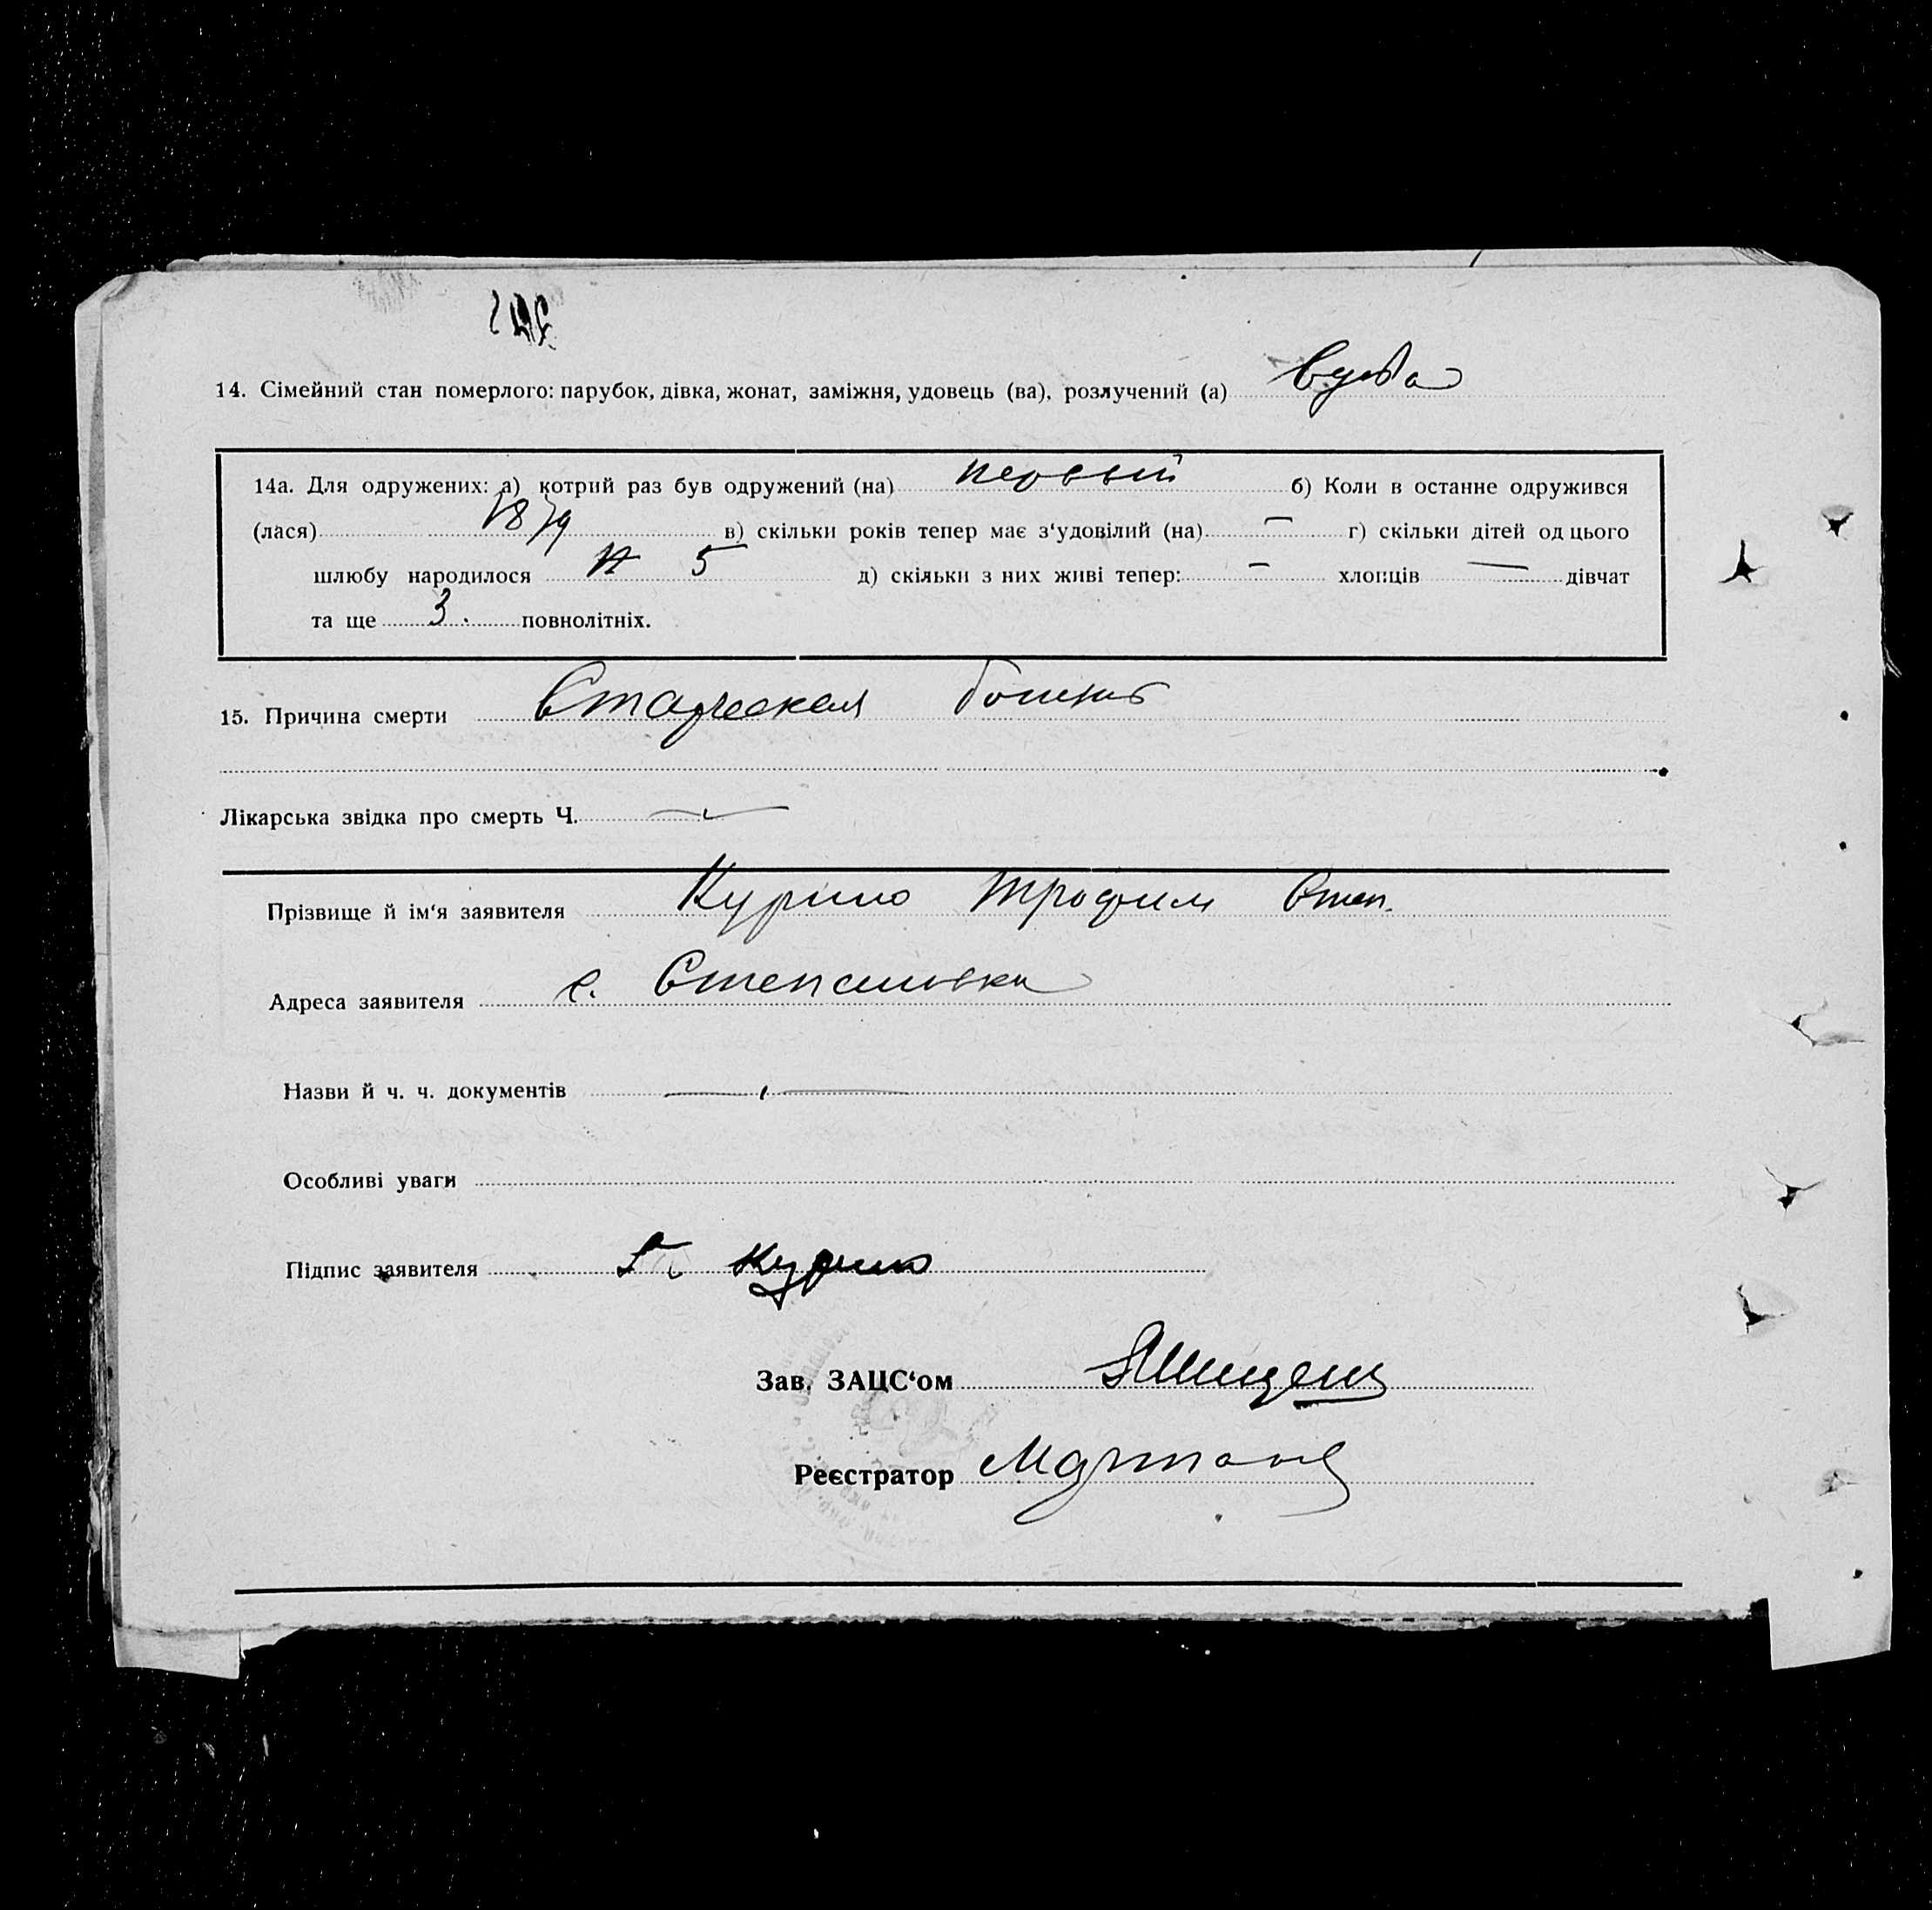 14. Сімейний стан померлого: парубок, дівка, жонат, заміжня, удовець (ва), розлучений (а) вдова
14а. Для одружених: а) котрий раз був одружений (на) первый б) Коли в останне одружився
(лася) 1879 в) скільки років тепер має з‘удовілий (на) — г) скільки дітей од цього
шлюбу народилося 5 д) скільки з них живі тепер: — хлопців — дівчат
та ще 3. повнолітніх.
15. Причина смерти Старческая болезнь
Лікарська звідка про смерть Ч. —
Прізвище й ім‘я заявителя Курило Трофим Степ.
Адреса заявителя с. Степановка
Назви й ч. ч. документів —
Особливі уваги
Підпис заявителя Курило
Зав. ЗАЦС‘ом
Реєстратор